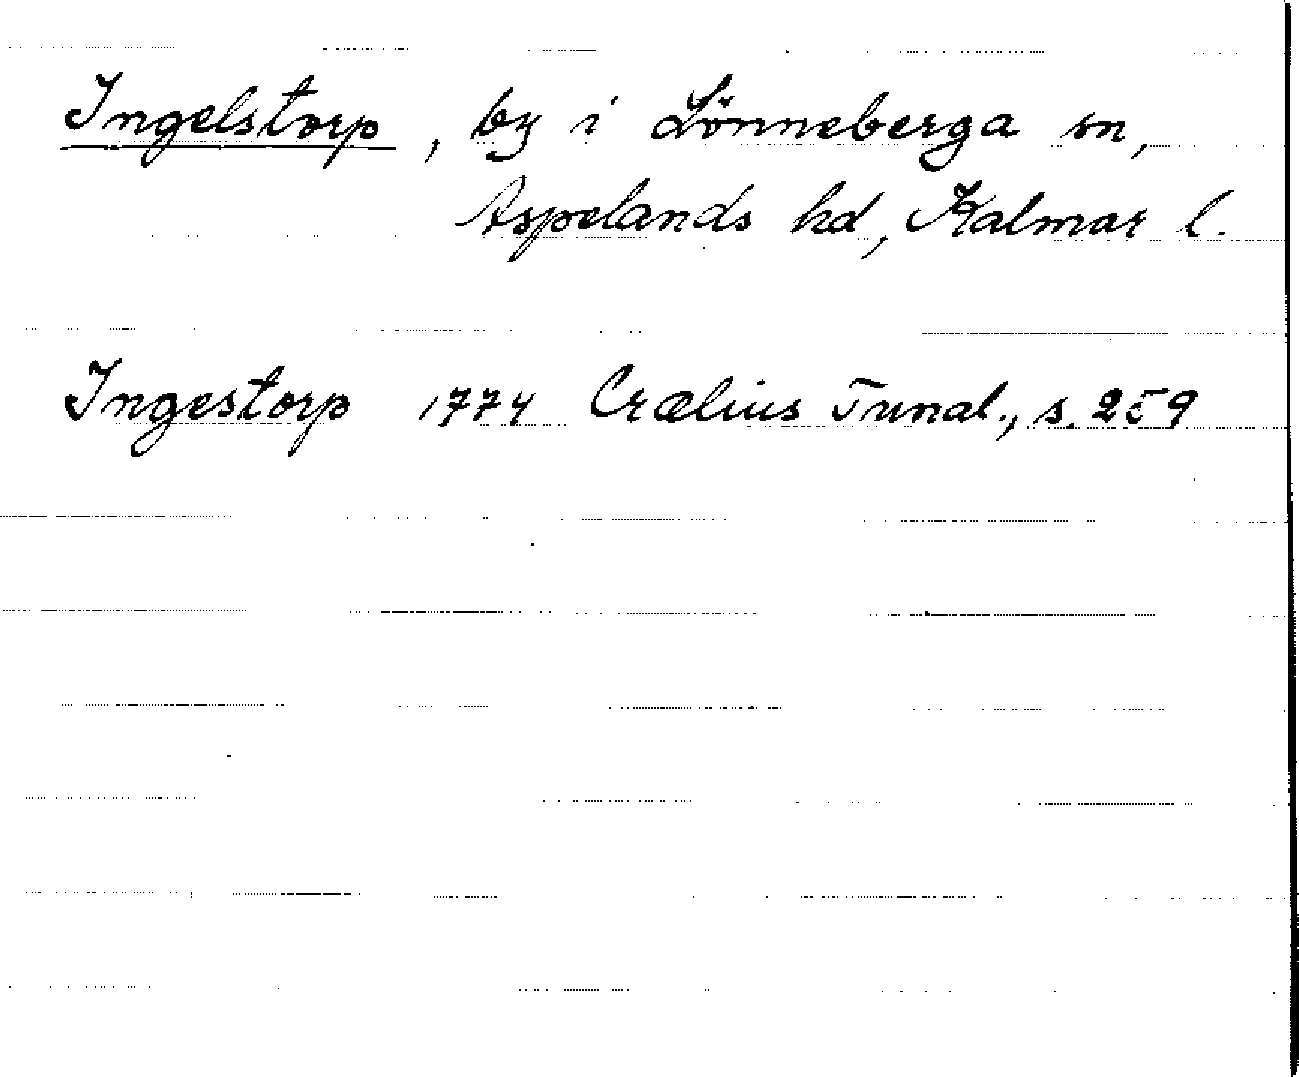 Ingelstorp, by i Lönneberga sn,
Aspelands hd, Kalmar l.
Ingestorp 1774 Crælius Tunal., s. 259